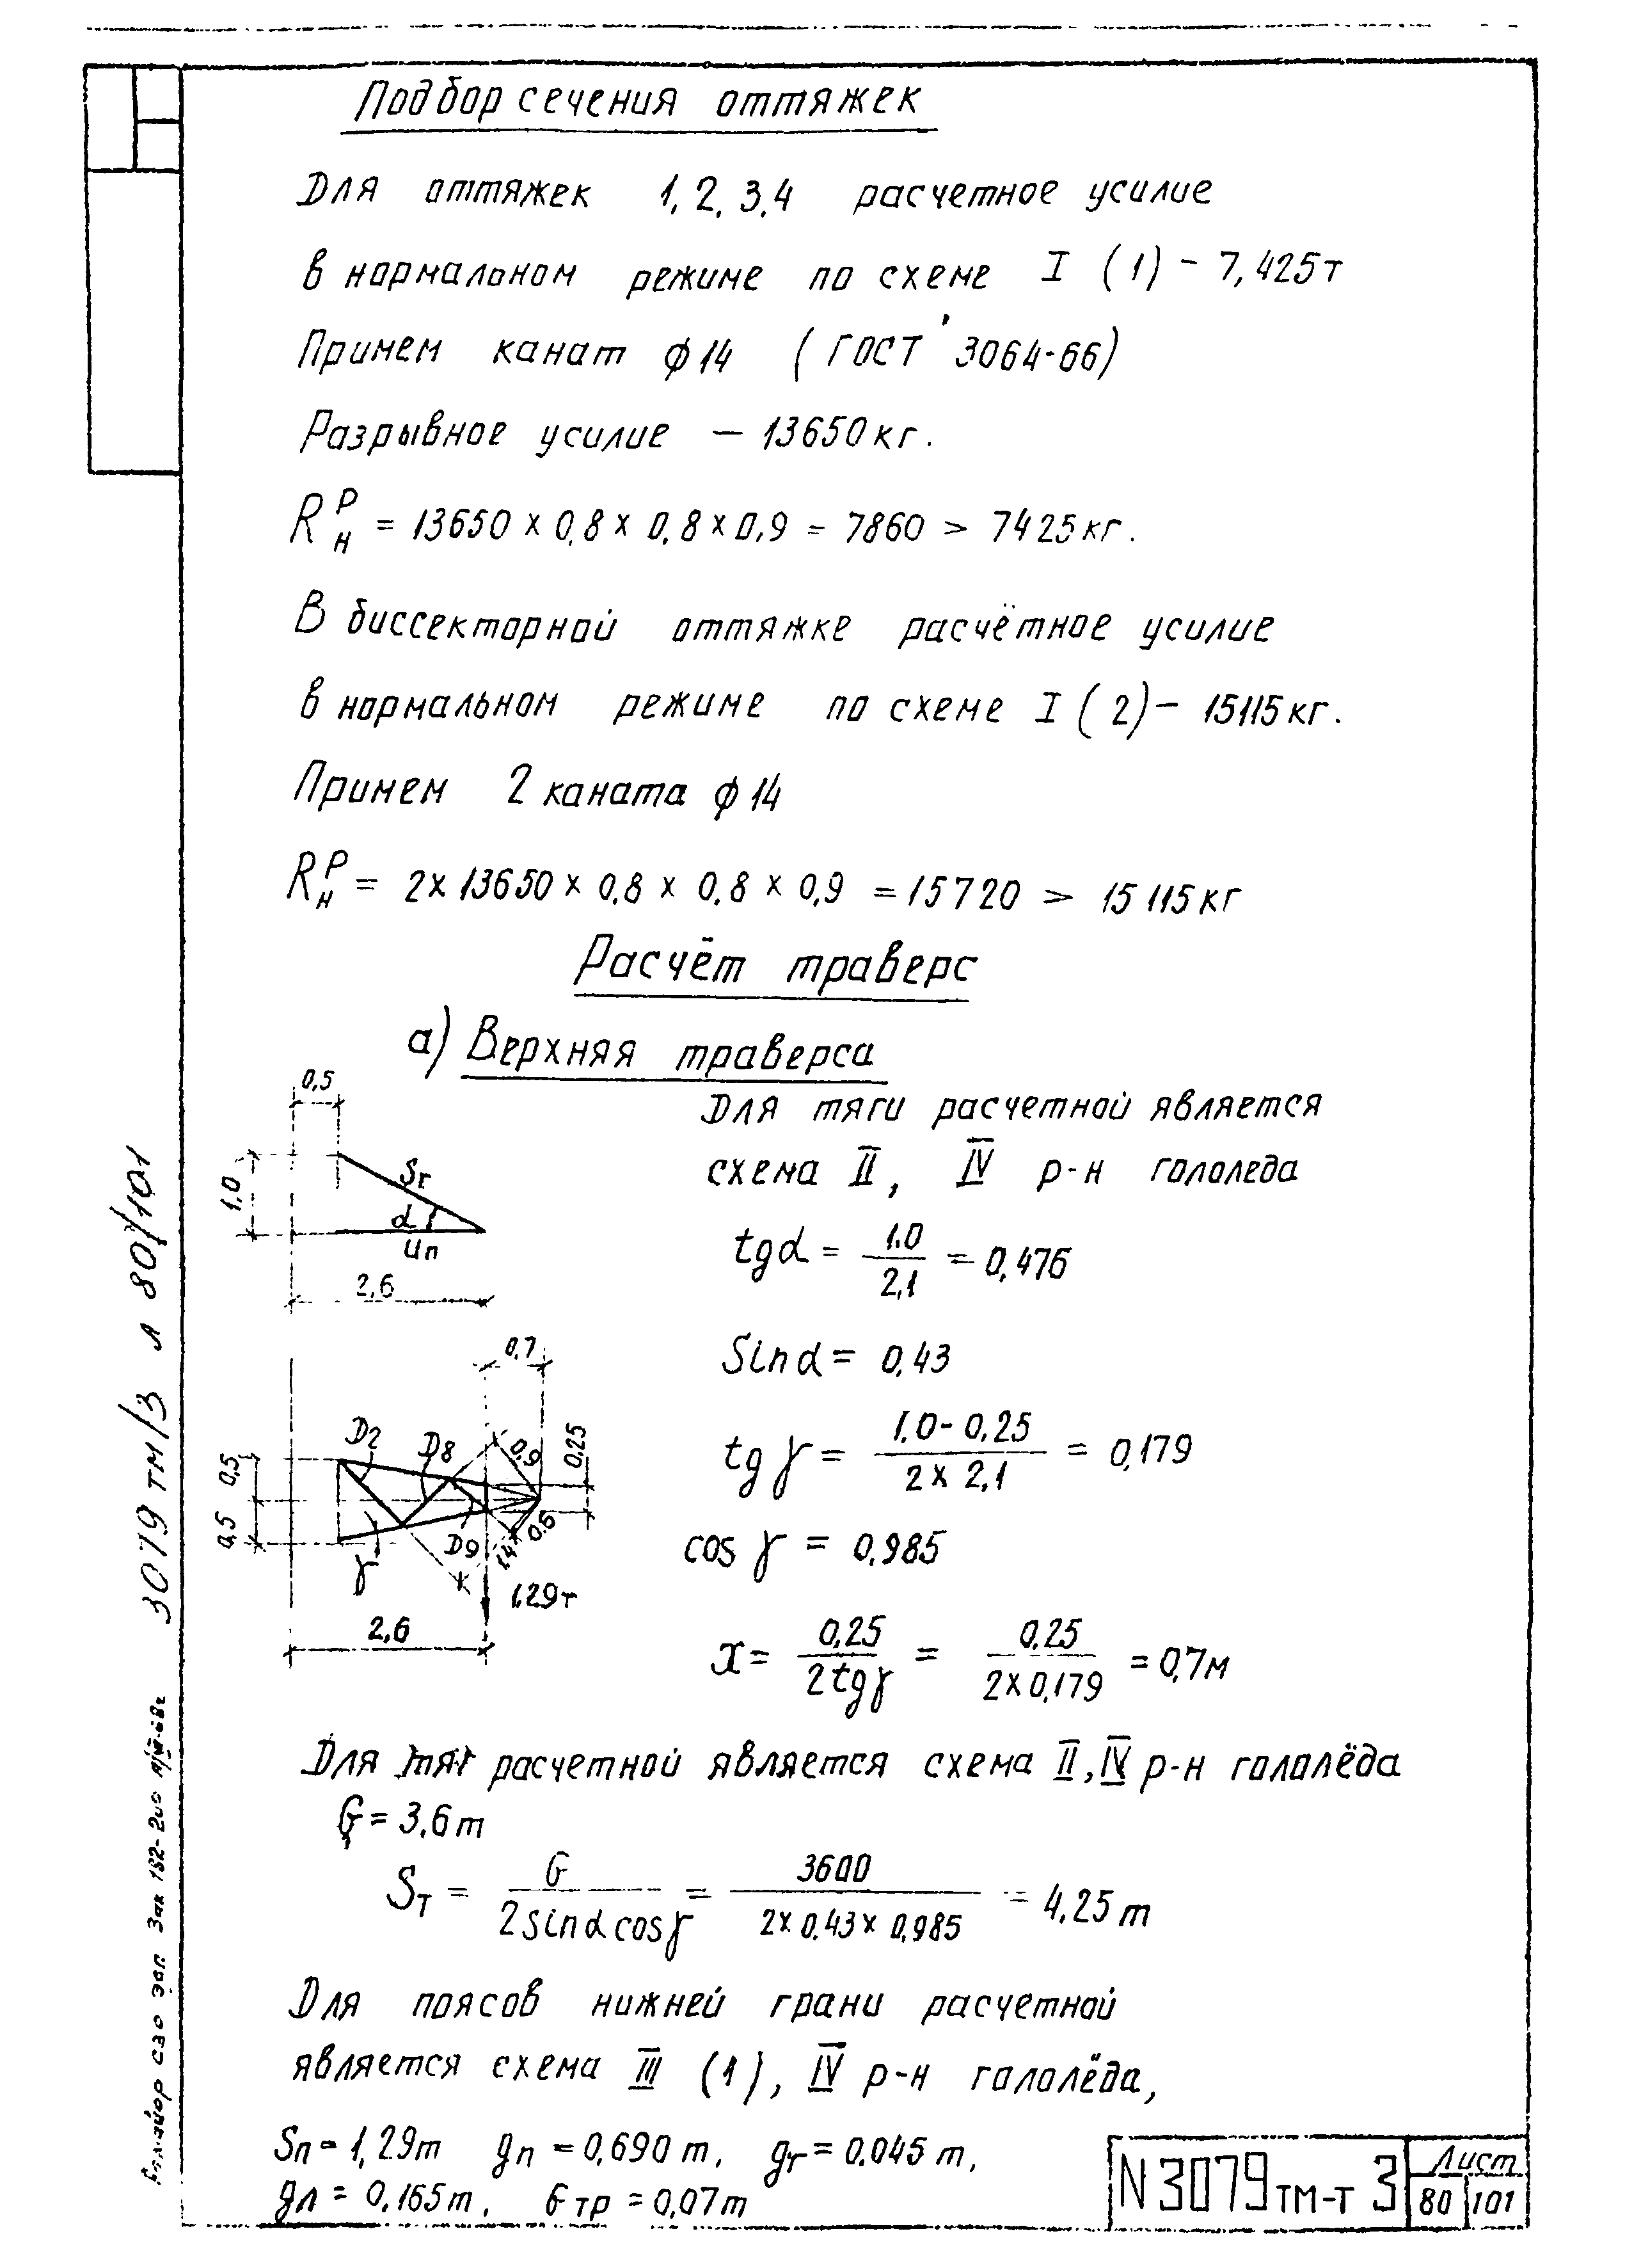 Подбор сечения оттяжек
Для оттяжек 1, 2, 3, 4 расчетное усилие
в нормальном режиме по схеме I (1) - 7,425т
Примем канат ф14 (ГОСТ 3064-66)
Разрывное усилие – 13650кг.
R^р_н = 13650 x 0,8 x 0,8 x 0,9 = 7860 > 7425кг.
В биссекторной оттяжке расчётное усилие
в нормальном режиме по схеме I (2) - 15115кг.
Примем 2 каната ф14
R^р_н = 2x 13650 x 0,8 x 0,8 x 0,9 = 15720 > 15115кг
Расчёт траверс
а) Верхняя траверса
0,5
1,0
Sт
α
Uп
2,6
Для тяги расчетной является
схема II, IV р-н гололеда
tgα = 1.0 / 2,1 = 0,476
Sinα = 0,43
0,7
D2
D8
0,9
0,25
0,5
0,5
γ
D9
1,4
0,6
1,29т
2,6
tg γ = 1.0 - 0,25 / 2 x 2,1 = 0,179
cos γ = 0,985
x = 0,25 / 2tgγ = 0,25 / 2x0,179 = 0,7м
Для тяг расчетной является схема II, IV р-н гололёда
G = 3,6т
Sт = G / 2sinα cosγ = 3600 / 2x 0.43x 0,985 = 4,25т
Для поясов нижней грани расчетной
является схема III (1), IV р-н гололёда,
Sп = 1,29т gп = 0,690т, gг = 0.045т,
gл = 0,165т, Gтр = 0,07т
N3079тм-т 3
Лист
80 101
3079тм/3 л 80/101
Зак 182-200